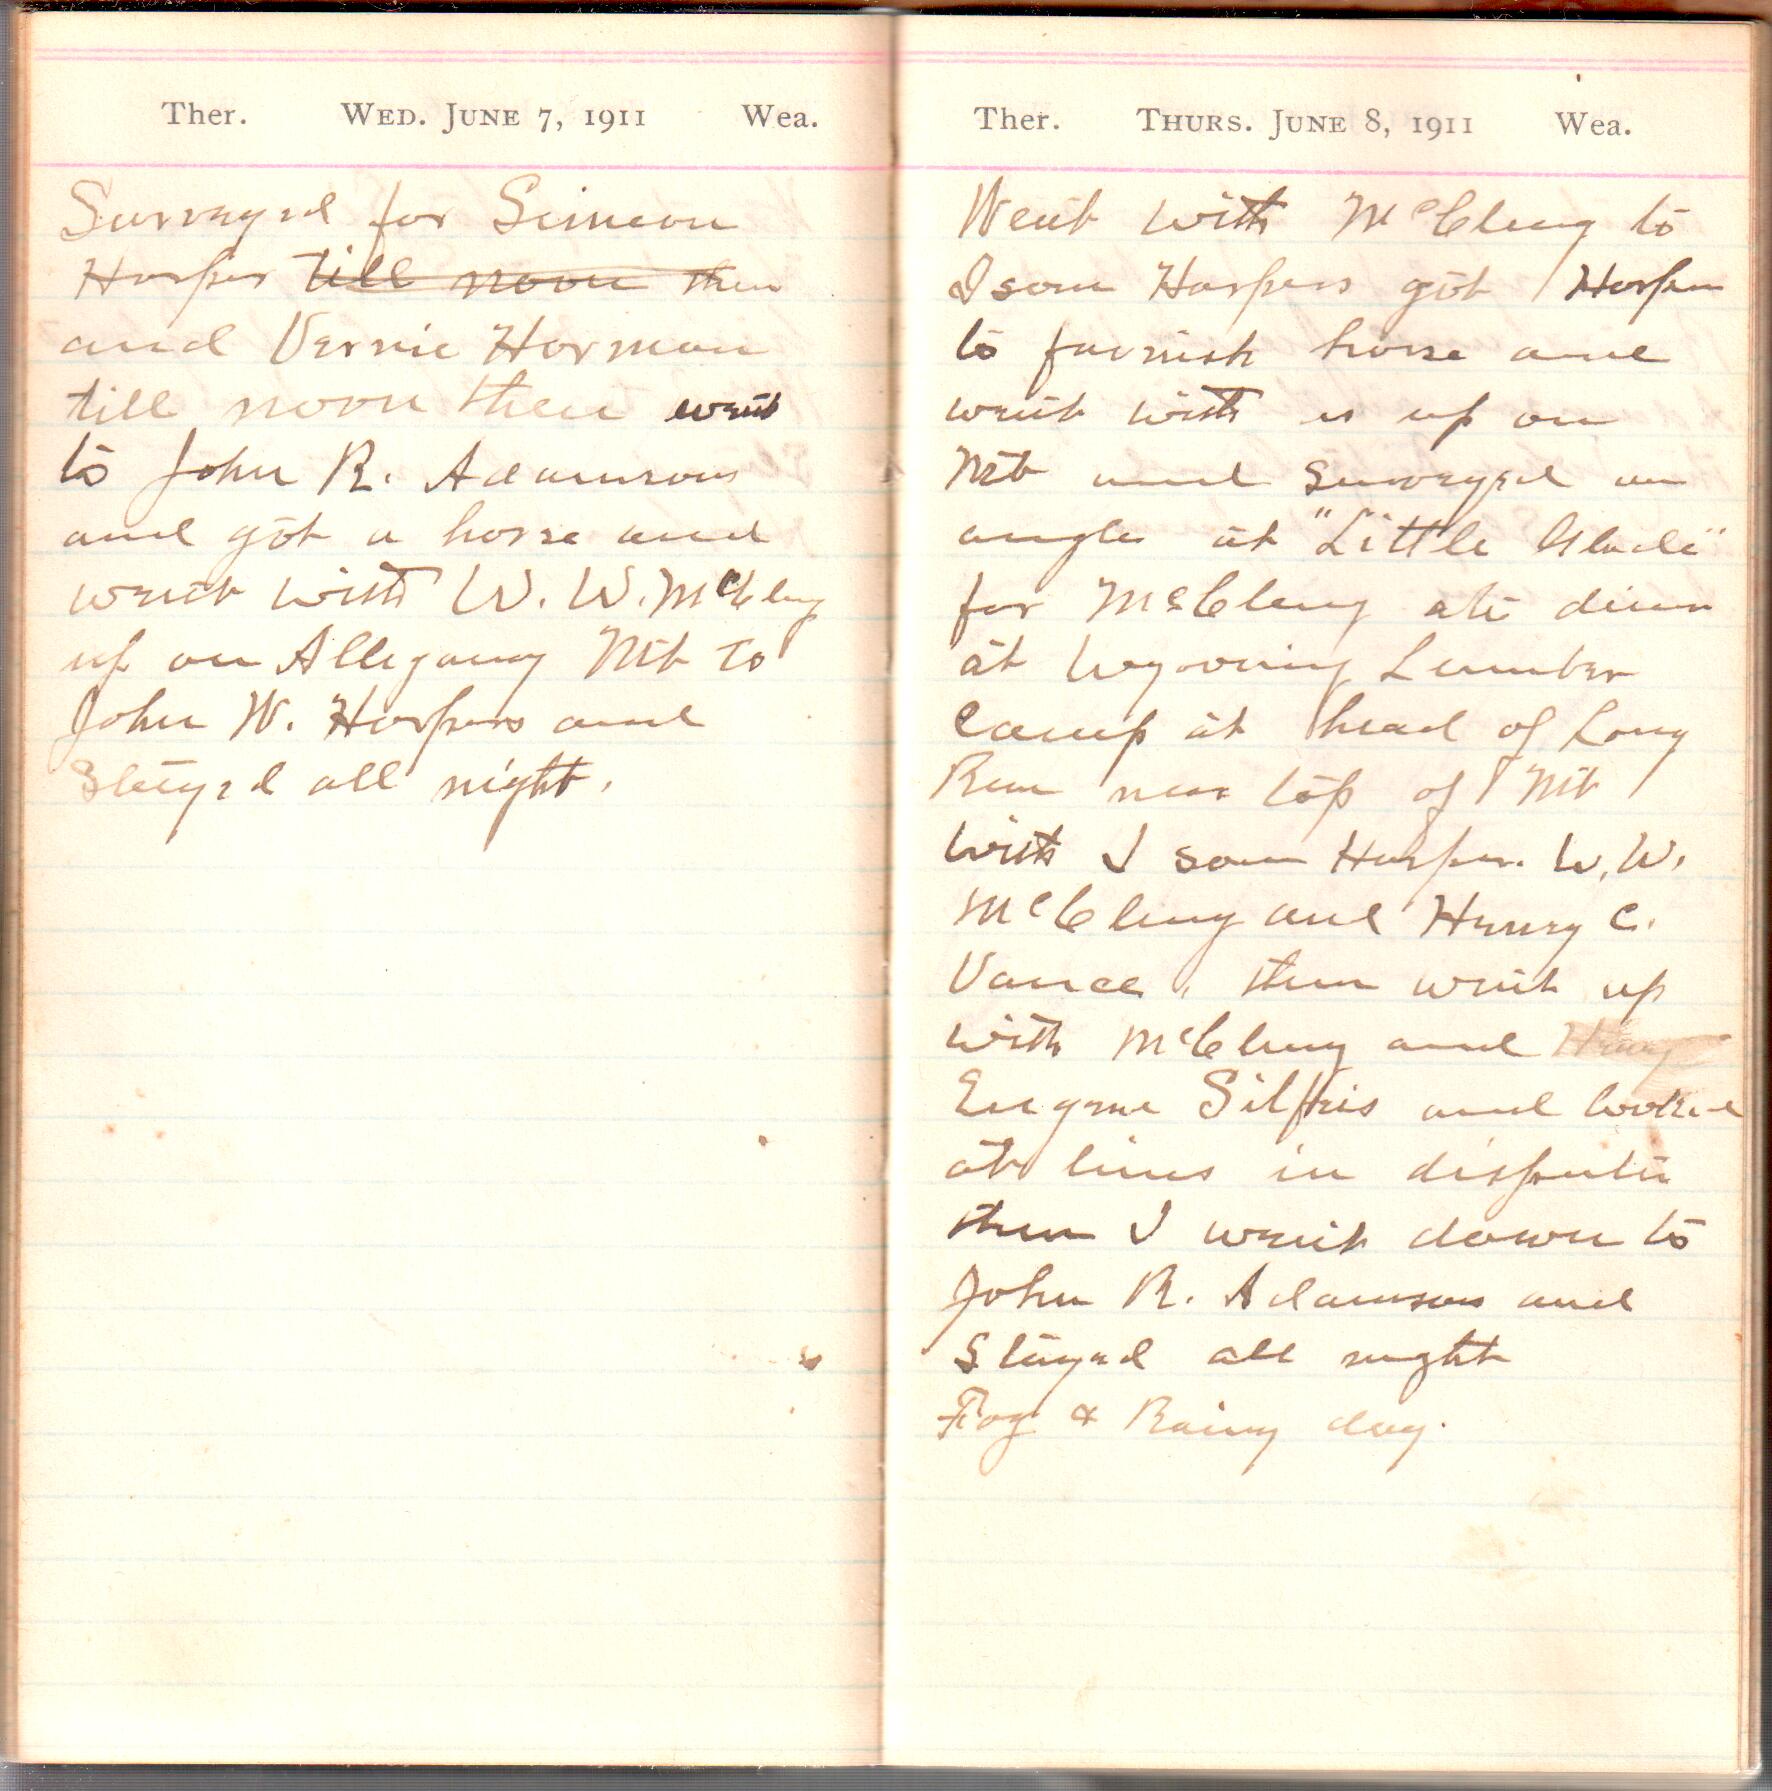 Ther. WED. JUNE 7, 1911 Wea.
Surveyed for Simeon
Harper till noon then
and Vernie Harman
till noon then went
to John R. Adamsons
and got a horse and
went with W. W. McClung
up on Allegany Mt to
John W. Harpers and
Stayed all night.
Ther. THURS. JUNE 8, 1911 Wea.
Went with McClung to
Isom Harpers got Harper
to furnish horse and
went with us up on
Mt and Surveyed an
angle at "Little Glade"
for McClung ate diner
at Wyoming Lumber
Camp at head of Long
Run near top of Mt
with Isom Harper. W. W.
McClung and Henry C.
Vance, then went up
with McClung and Henry
Eugene and looked
at lines in dispute
then I went down to
John R. Adamsons and
Stayed all night
Fog & Rainy day.